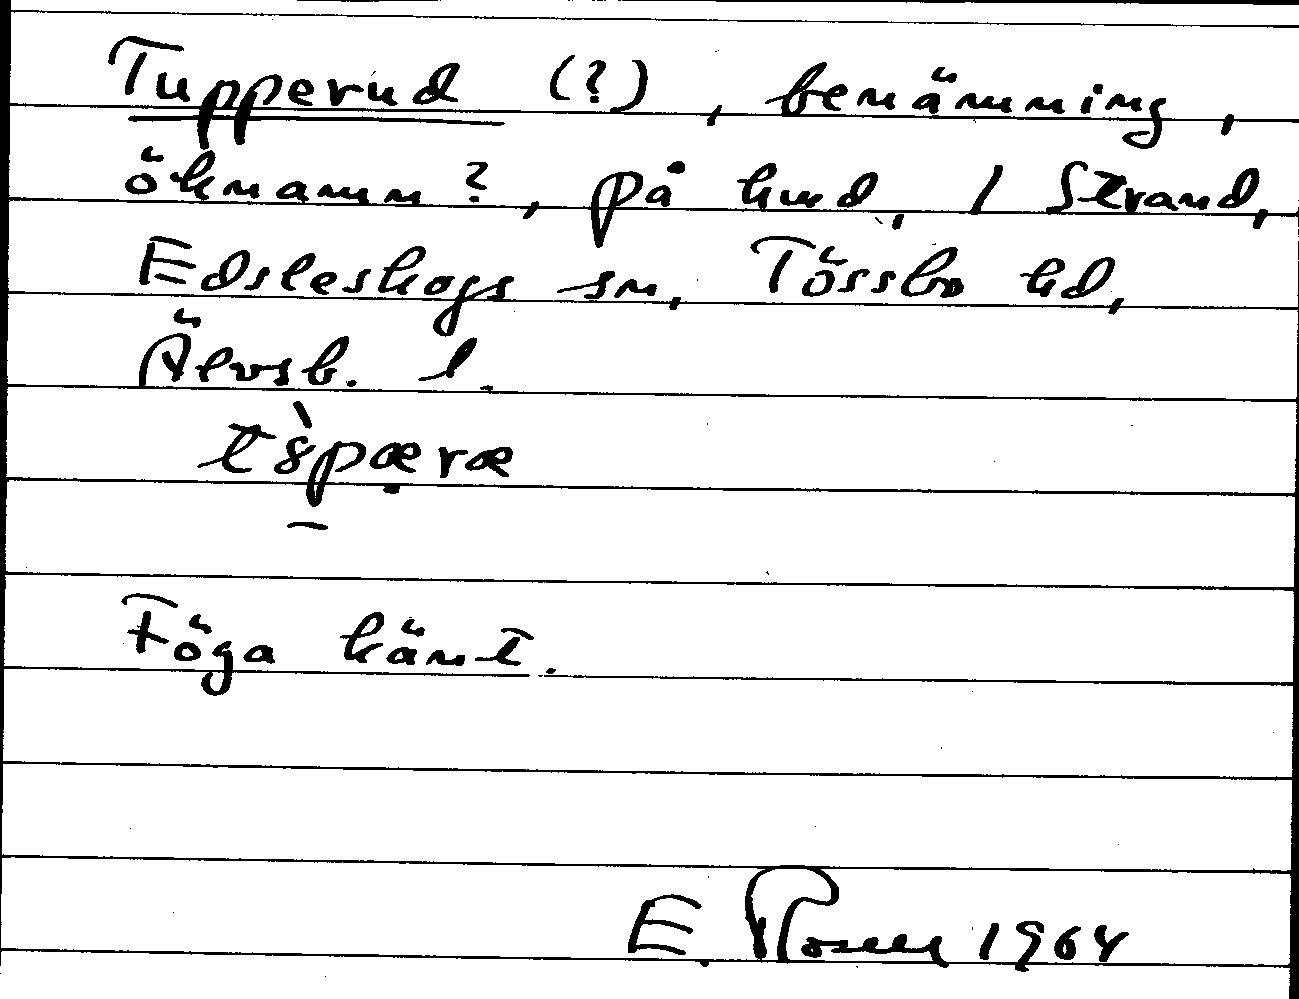 Tupperud (?), benämning,
öknamn?, på hmd, 1 Strand,
Edsleskogs sn, Tössbo hd,
Älvsb. l.
tȣ̀pæræ
Föga känt.
E. 1964